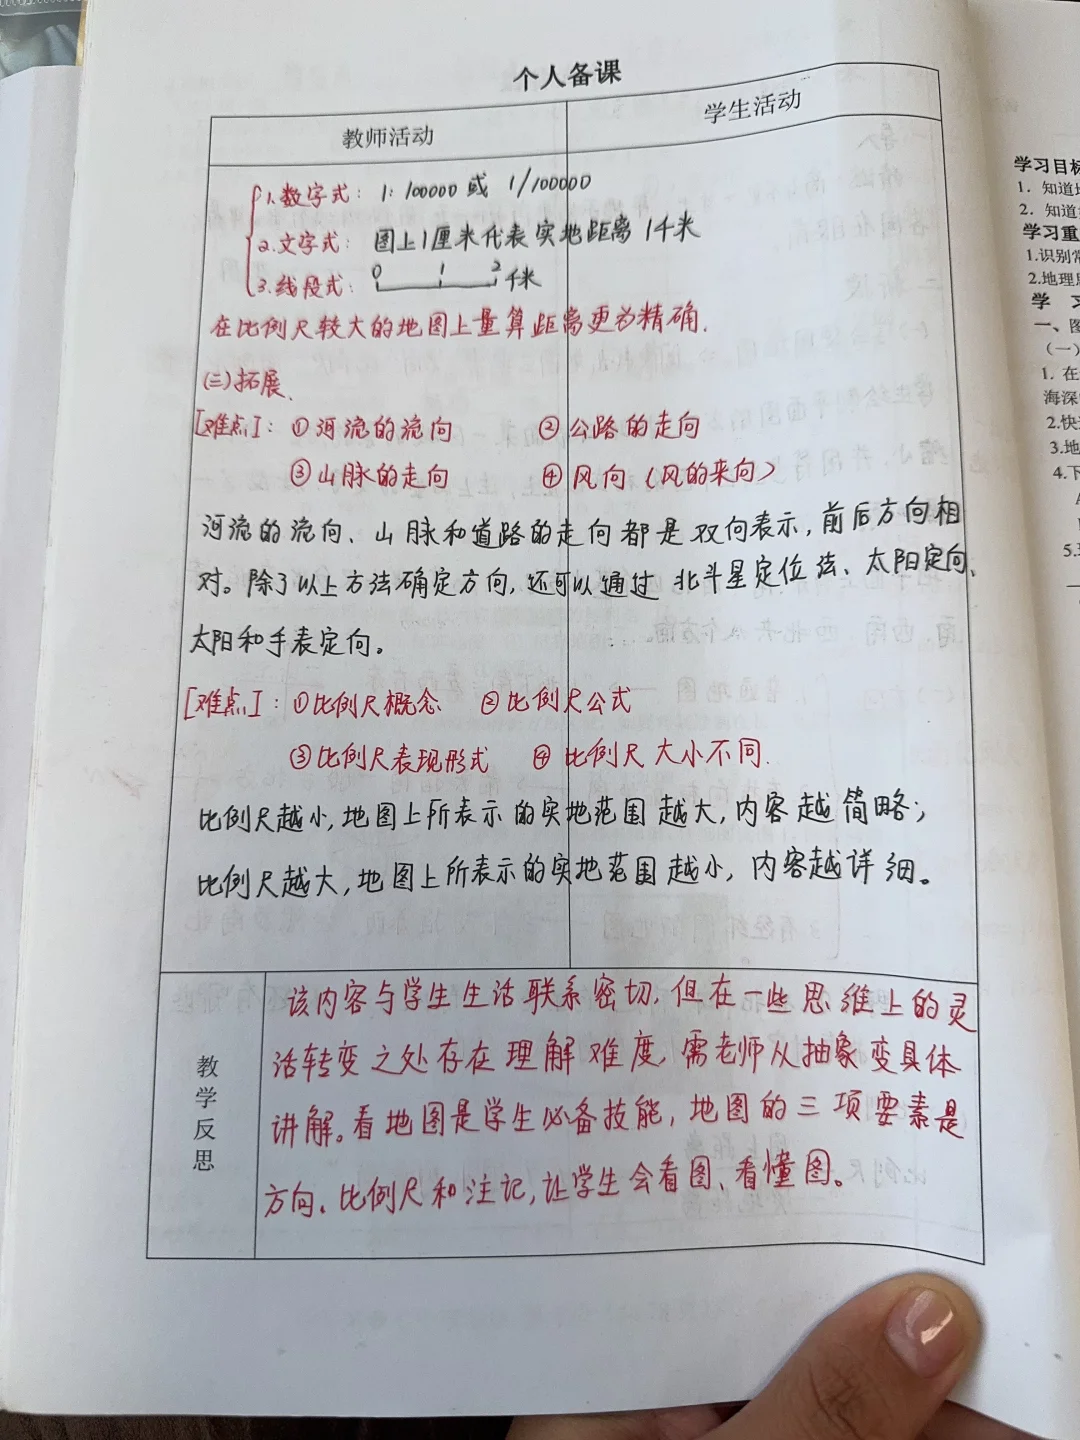 个人备课
教师活动
学生活动
1.数字式：1：100000 或 1/100000
2.文字式：图上1厘米代表实地距离1千米
3.线段式：0 1 2千米
在比例尺较大的地图上量算距离更为精确.
(三)拓展.
[难点]：①河流的流向 ②公路的走向
③山脉的走向 ④风向（风的来向）
河流的流向、山脉和道路的走向都是双向表示，前后方向相
对。除了以上方法确定方向，还可以通过北斗星定位法、太阳定向、
太阳和手表定向。
[难点]：①比例尺概念 ②比例尺公式
③比例尺表现形式 ④比例尺大小不同.
比例尺越小，地图上所表示的实地范围越大，内容越简略；
比例尺越大，地图上所表示的实地范围越小，内容越详细。
教学反思
该内容与学生生活联系密切，但在一些思维上的灵
活转变之处存在理解难度，需老师从抽象变具体
讲解。看地图是学生必备技能，地图的三项要素是
方向、比例尺和注记，让学生会看图、看懂图。
学习目标
1. 知道
2. 知道
学习重
1.识别常
2.地理
学 习
一、图
（一）
1. 在
海深
2.快
3.地
4.下
A
5.